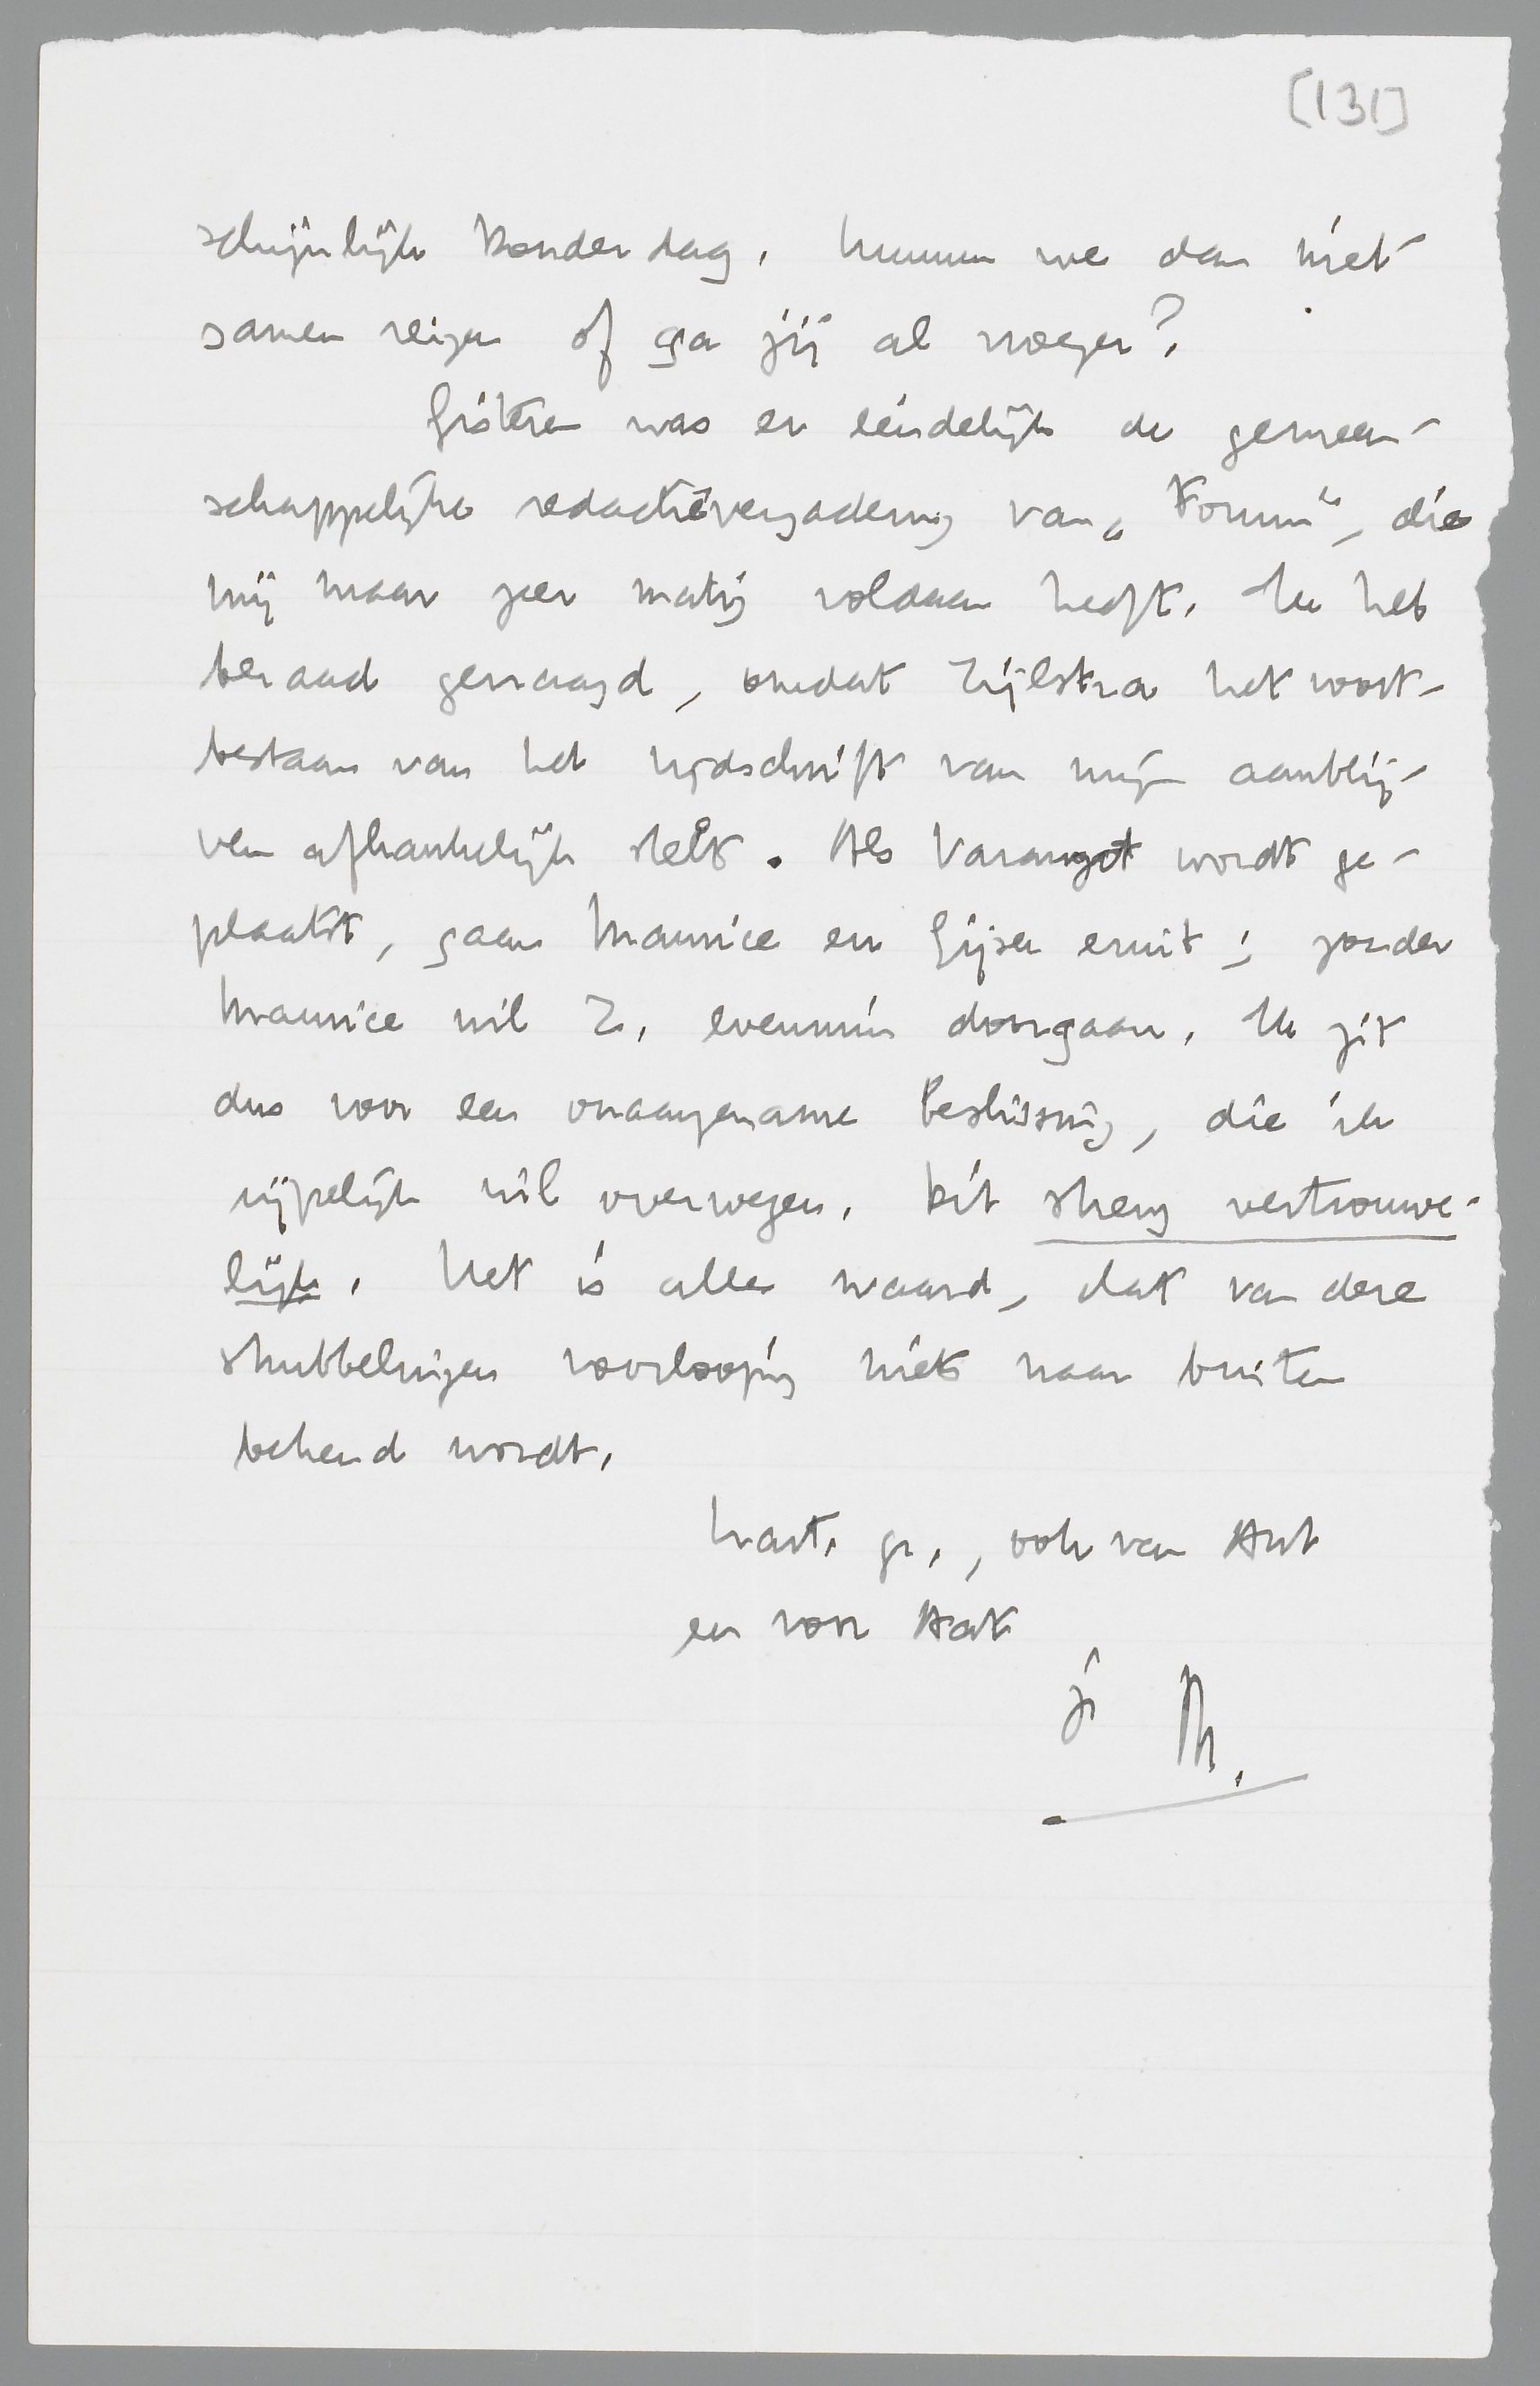 [131]
schijnlijk Donderdag. Kunnen we dan niet
samen reizen of ga jij al vroeger?
Gisteren was er eindelijk de gemeen-
schappelijke redactievergadering van „Forum”, die
mij maar zeer matig voldaan heeft. Ik heb
beraad gevraagd, omdat Zijlstra het voort-
bestaan van het tijdschrift van mijn aanblij-
ven afhankelijk stelt. Als Varangot wordt ge-
plaatst, gaan Maurice en Gijsen eruit; zonder
Maurice wil Z. evenmin doorgaan. Ik zit
dus voor een onaangename beslissing, die ik
rijpelijk wil overwegen. Dit streng vertrouwe-
lijk. Het is alles waard, dat van deze
strubbelingen voorloopig niets naar buiten
bekend wordt.
Hart. gr., ook van Ant
en voor Aat
je M.